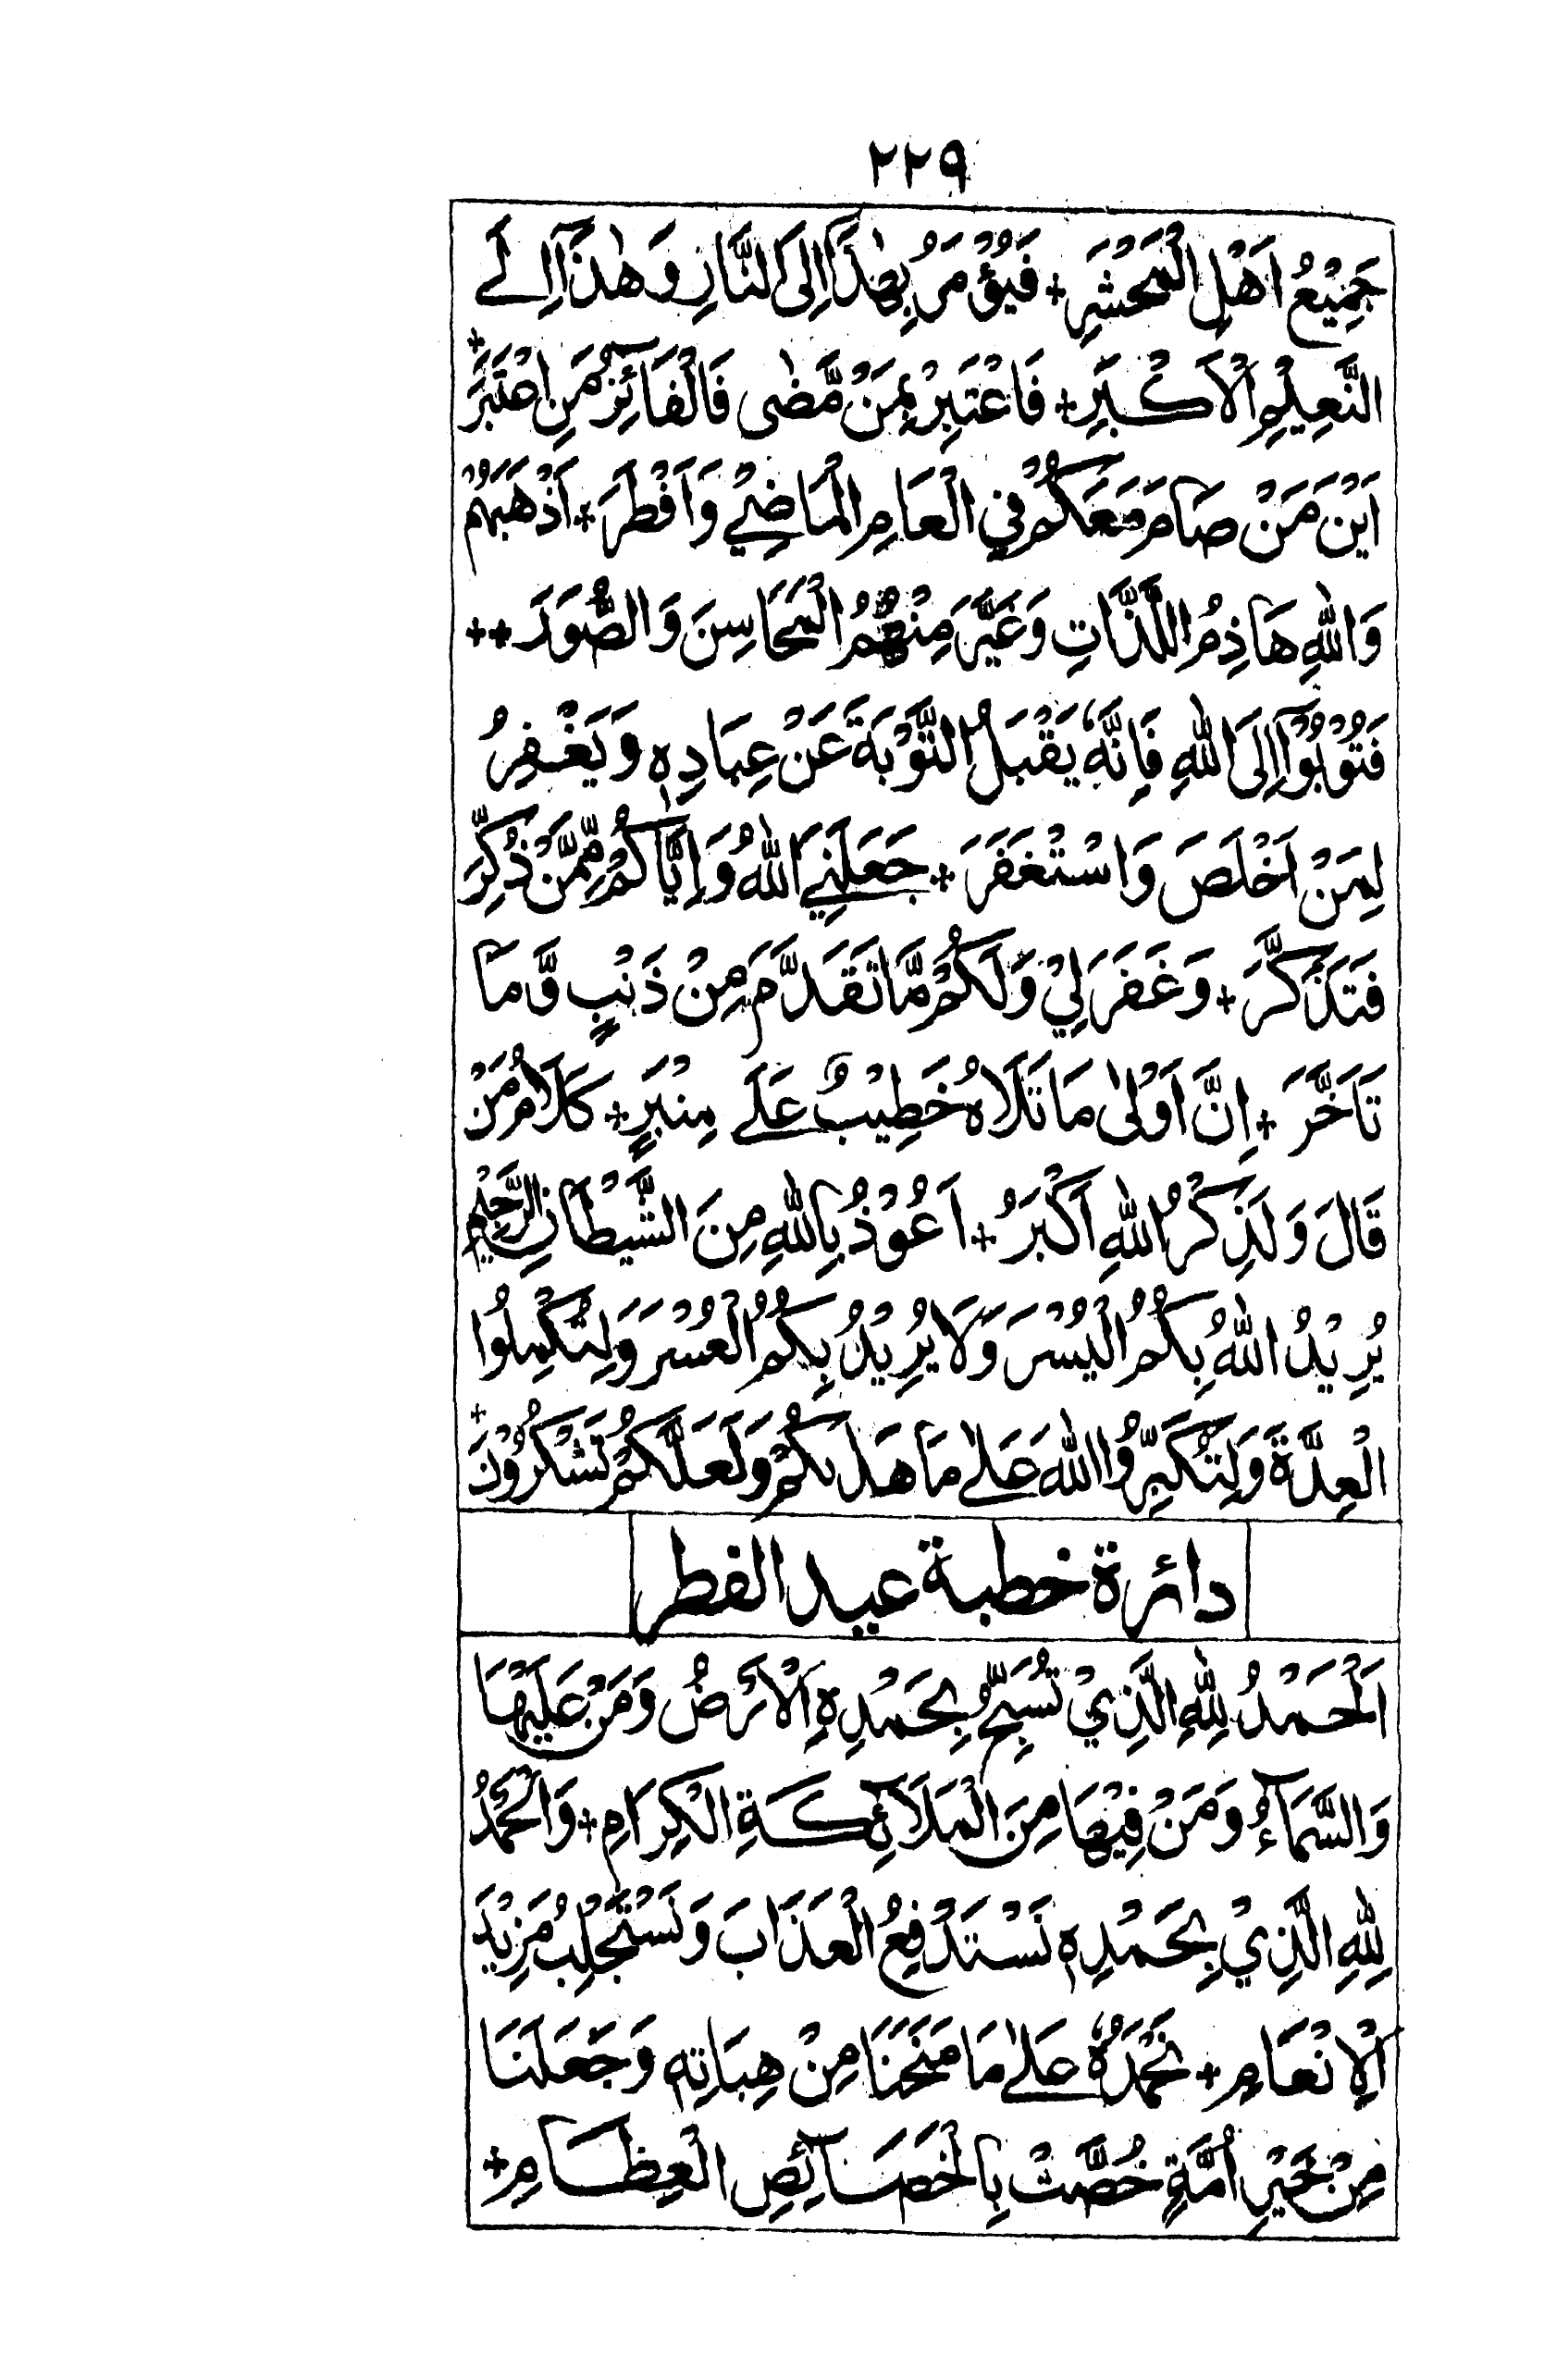 ٢٢٩
جَمِيْعُ اَهْلِ الْمَحْشَرِ + فَيُؤْمَرُ بِهٰذَا اِلَى النَّارِ وَهٰذَا اِلَے
النَّعِيْمِ الْاَكْبَرِ + فَاعْتَبِرْ بِمَنْ مَّضٰى فَالْفَائِزُ مَنِ اعْتَبَرَ +
اَيْنَ مَنْ صَامَ مَعَكُمْ فِي الْعَامِ الْمَاضِيْ وَاَفْطَرَ + اَذْهَبَهُمْ
وَاللّٰهِ هَاذِمُ اللَّذَّاتِ وَغَيَّرَ مِنْهُمُ الْمَحَاسِنَ وَالصُّوَرَ ++
فَتُوْبُوْا اِلَى اللّٰهِ فَاِنَّهٗ يَقْبَلُ التَّوْبَةَ عَنْ عِبَادِهٖ وَيَغْفِرُ
لِمَنْ اَخْلَصَ وَاسْتَغْفَرَ + جَعَلَنِيَ اللّٰهُ وَاِيَّاكُمْ مِّمَّنْ ذُكِّرَ
فَتَذَكَّرَ + وَغَفَرَ لِيْ وَلَكُمْ مَّا تَقَدَّمَ مِنْ ذَنْبٍ وَّمَا
تَاَخَّرَ + اِنَّ اَوْلٰى مَا تَلَاهُ خَطِيْبٌ عَلٰے مِنْبَرٍ + كَلَامُ مَنْ
قَالَ وَلَذِكْرُ اللّٰهِ اَكْبَرُ + اَعُوْذُ بِاللّٰهِ مِنَ الشَّيْطَانِ الرَّجِيْمِ
يُرِيْدُ اللّٰهُ بِكُمُ الْيُسْرَ وَلَا يُرِيْدُ بِكُمُ الْعُسْرَ وَلِتُكْمِلُوا
الْعِدَّةَ وَلِتُكَبِّرُوا اللّٰهَ عَلٰے مَا هَدٰىكُمْ وَلَعَلَّكُمْ تَشْكُرُوْنَ +
دائرة خطبة عيد الفطر
اَلْحَمْدُ لِلّٰهِ الَّذِيْ تُسَبِّحُ بِحَمْدِهِ الْاَرْضُ وَمَنْ عَلَيْهَا
وَالسَّمَآءُ وَمَنْ فِيْهَا مِنَ الْمَلَائِكَةِ الْكِرَامِ + وَالْحَمْدُ
لِلّٰهِ الَّذِيْ بِحَمْدِهٖ نَسْتَدْفِعُ الْعَذَابَ وَنَسْتَجْلِبُ مَزِيْدَ
الْاِنْعَامِ + نَحْمَدُهٗ عَلٰے مَا مَنَحَنَا مِنْ هِبَاتِهٖ وَجَعَلَنَا
مِنْ خَيْرِ اُمَّةٍ خُصَّتْ بِالْخَصَائِصِ الْعِظَامِ +